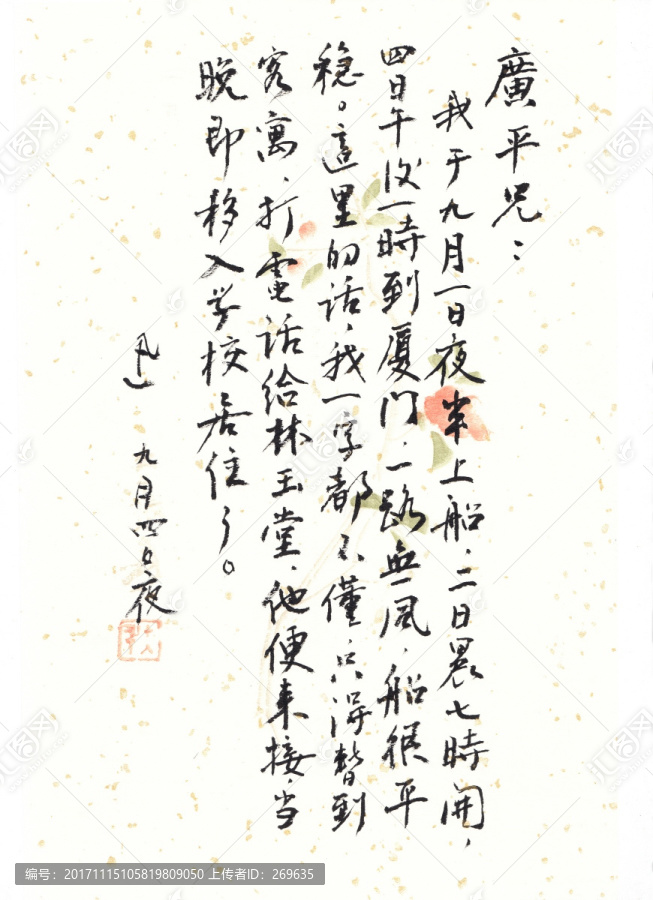 廣平兄：
我于九月一日夜半上船，二日晨七時開，
四日午後一時到厦门，一路無風，船很平
穩。這里的話，我一字都不懂，只得暫到
客寓，打電話給林玉堂，他便来接，当
晚即移入学校居住了。
迅 九月四日夜
编号：20171115105819809050 上传者ID：269635